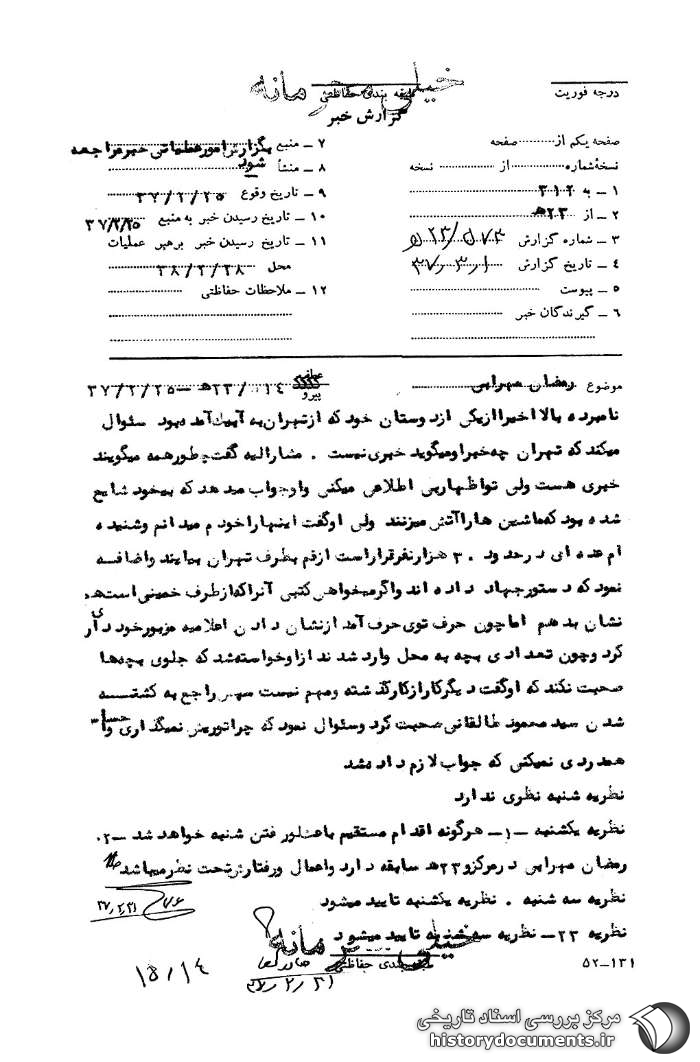 خیلی محرمانه
درجه فوریت
طبقه بندی حفاظتی
گزارش خبر
صفحه یکم از صفحه
نسخهٔ شماره از نسخه
۱ – به ۳۱۲
۲ – از ۲۳ه
۳ – شماره گزارش
۴ – تاریخ گزارش
۵ – پیوست
۶ – گیرندگان خبر
۷ – منبع بگزارش امور عملیاتی خبر مراجعه
شود
۸ – منشأ
۹ – تاریخ وقوع ۳۷/۲/۲۵
۱۰ – تاریخ رسیدن خبر به منبع ۳۷/۲/۲۵
۱۱ – تاریخ رسیدن خبر برهبر عملیات
محل ۳۸/۲/۲۸
۱۲ – ملاحظات حفاظتی
موضوع رمضان سهرابی
پیرو ۲۳/۰۰۱۴ه – ۳۷/۲/۲۵
نامبرده بالا اخیرا از یکی از دوستان خود که از تهران به آبیك آمده بود سئوال
میکند که تهران چه خبر او میگوید خبری نیست . مشارالیه گفت چطور همه میگویند
خبری هست ولی تو اظهار بی اطلاعی میکنی و او جواب میدهد که بیخود شایع
شده بود که ماشین ها را آتش میزنند ولی او گفت اینها را خودم میدانم و شنیده
ام عده ای در حدود ۳۰ هزار نفر قرار است از قم بطرف تهران بیایند و اضافه
نمود که دستور جهاد داده اند و اگر میخواهی کتبی آنرا که از طرف خمینی است هم
نشان بدهم اما چون حرف توی حرف آمد از نشان دادن اعلامیه مزبور خود داری
کرد و چون تعدادی بچه به محل وارد شدند از او خواسته شد که جلوی بچه ها
صحبت نکند که او گفت دیگر کار از کار گذشته و مهم نیست سپس راجع به کشته
شدن سید محمود طالقانی صحبت کرد و سئوال نمود که چرا تو ریش نمیگذاری و احساس
همدردی نمیکنی که جواب لازم داده شد
نظریه شنبه نظری ندارد
نظریه یکشنبه –۱– هرگونه اقدام مستقیم باعث لو رفتن شنبه خواهد شد –۲۰
رمضان سهرابی در مرکز و ۲۳ه سابقه دارد و اعمال و رفتارش تحت نظر میباشد
نظریه سه شنبه . نظریه یکشنبه تایید میشود
نظریه ۲۳– نظریه سه شنبه تایید میشود
خیلی محرمانه
طبقه بندی حفاظتی
۵۲–۱۳۱
۱۵/۱۴
مرکز بررسی اسناد تاریخی
historydocuments.ir